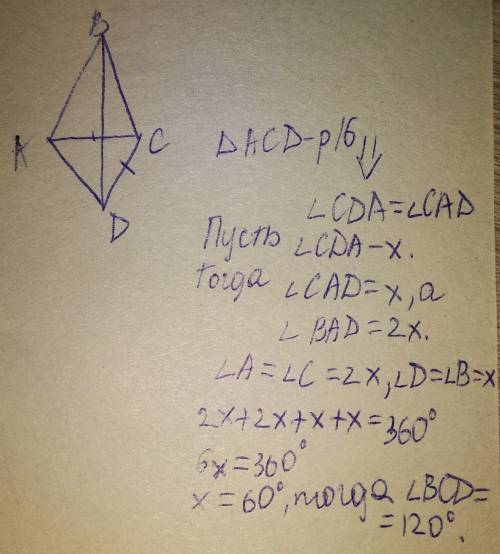 B
A
C
D
ΔACD-р/б
∠CDA=∠CAD
Пусть ∠CDA-x.
тогда ∠CAD=x, а
∠BAD=2x.
∠A=∠C=2x,∠D=∠B=x
2x+2x+x+x=360°
6x=360°
x=60°, тогда ∠BCD=
=120°.